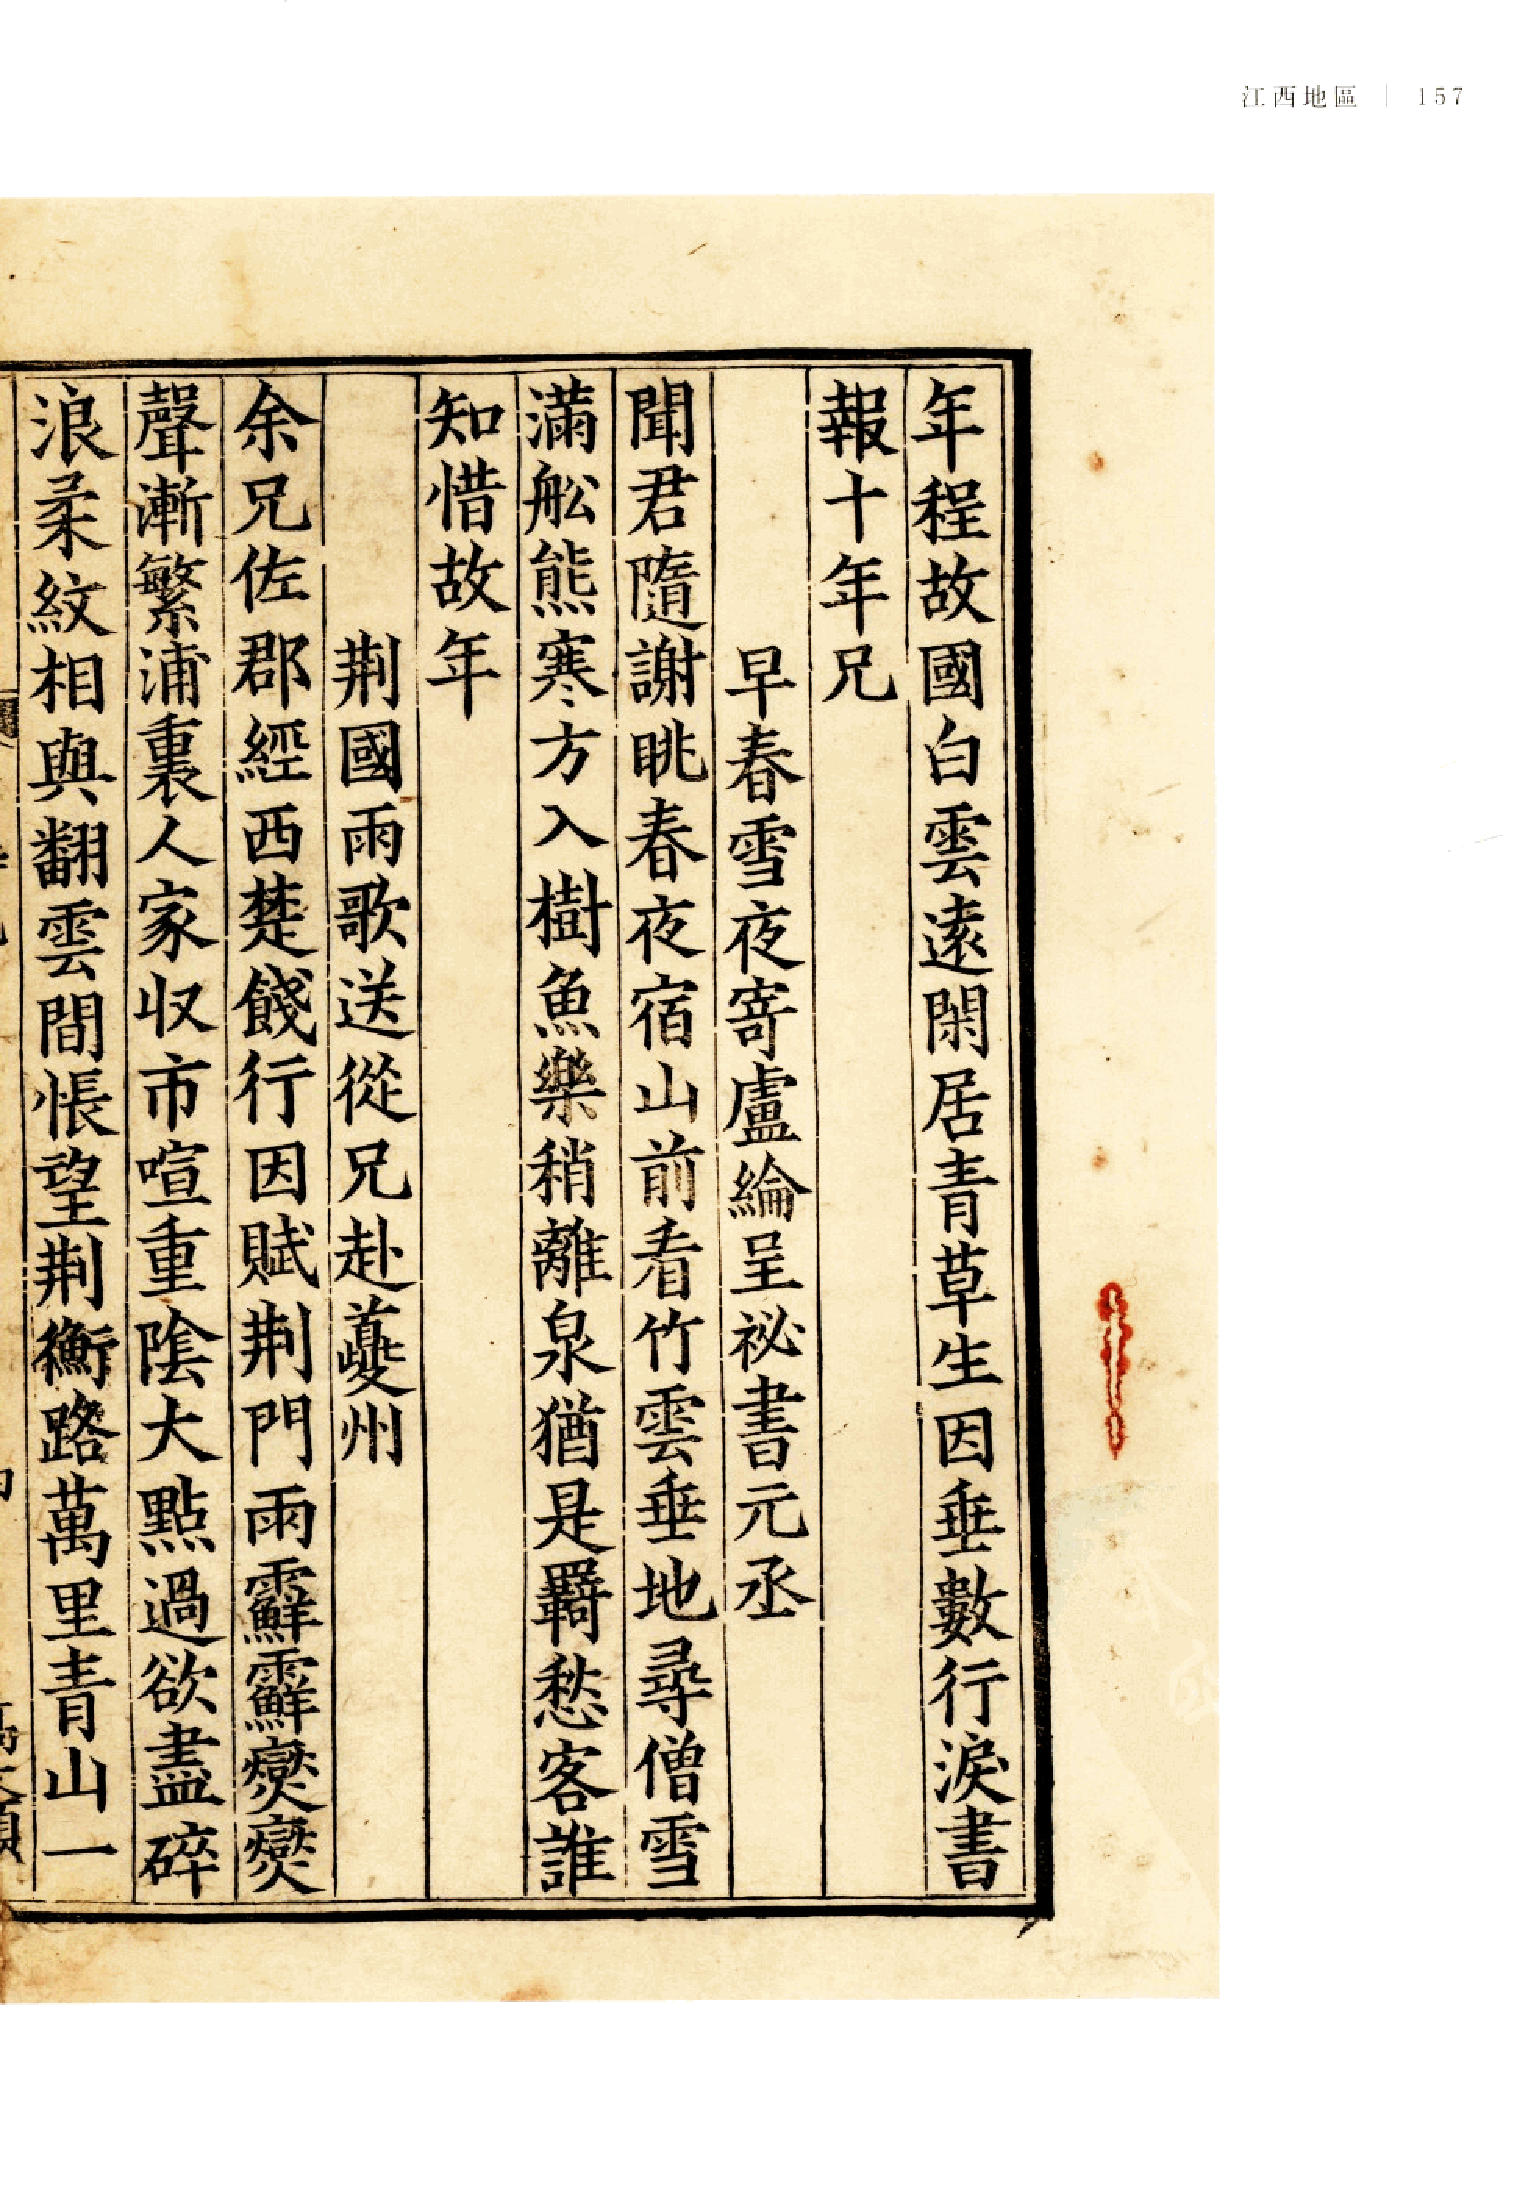 江西地區 | 157
年程故國白雲遠閑居青草生因垂數行淚書
報十年兄
早春雪夜寄盧綸呈祕書元丞
聞君隨謝眺春夜宿山前看竹雲垂地尋僧雪
滿舩熊寒方入樹魚樂稍離泉猶是羇愁客誰
知惜故年
荆國雨歌送從兄赴夔州
余兄佐郡經西楚餞行因賦荆門雨霢霢㸌㸌
聲漸繁浦裏人家収市喧重陰大點過欲盡碎
浪柔紋相與翻雲間悵望荆衡路萬里青山一